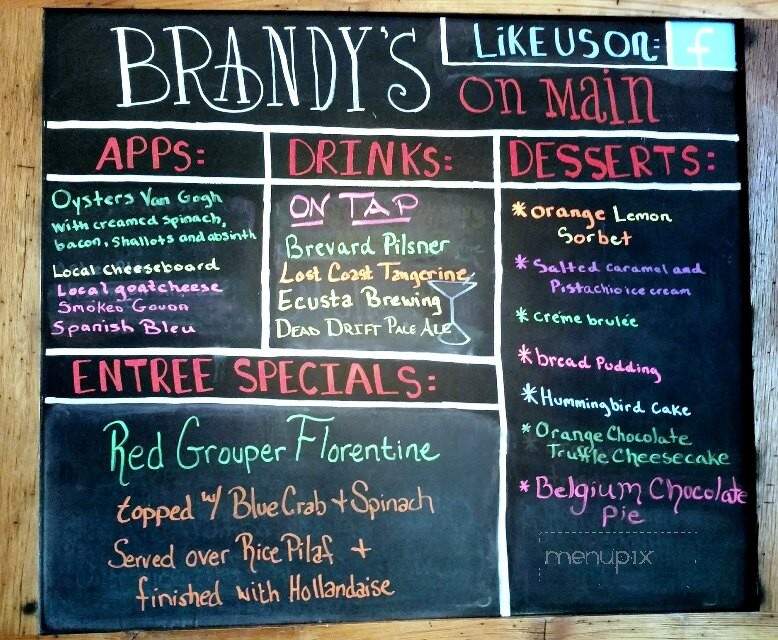 BRANDY'S
LiKE US ON: f
on Main
APPS:
Oysters Van Gogh
with creamed spinach,
bacon, Shallots and absinth
Local Cheeseboard
Local goat cheese
Smoked Gouda
Spanish Bleu
DRINKS:
ON TAP
Brevard Pilsner
Lost Coast Tangerine
Ecusta Brewing
Dead Drift Pale Ale
DESSERTS:
* orange Lemon
Sorbet
* Salted caramel and
Pistachio ice cream
* creme brulée
* bread Pudding
* Hummingbird Cake
* Orange Chocolate
Truffle Cheesecake
* Belgium Chocolate
Pie
ENTREE SPECIALS:
Red Grouper Florentine
topped w/ Blue Crab + Spinach
Served over Rice Pilaf +
finished with Hollandaise
menupix